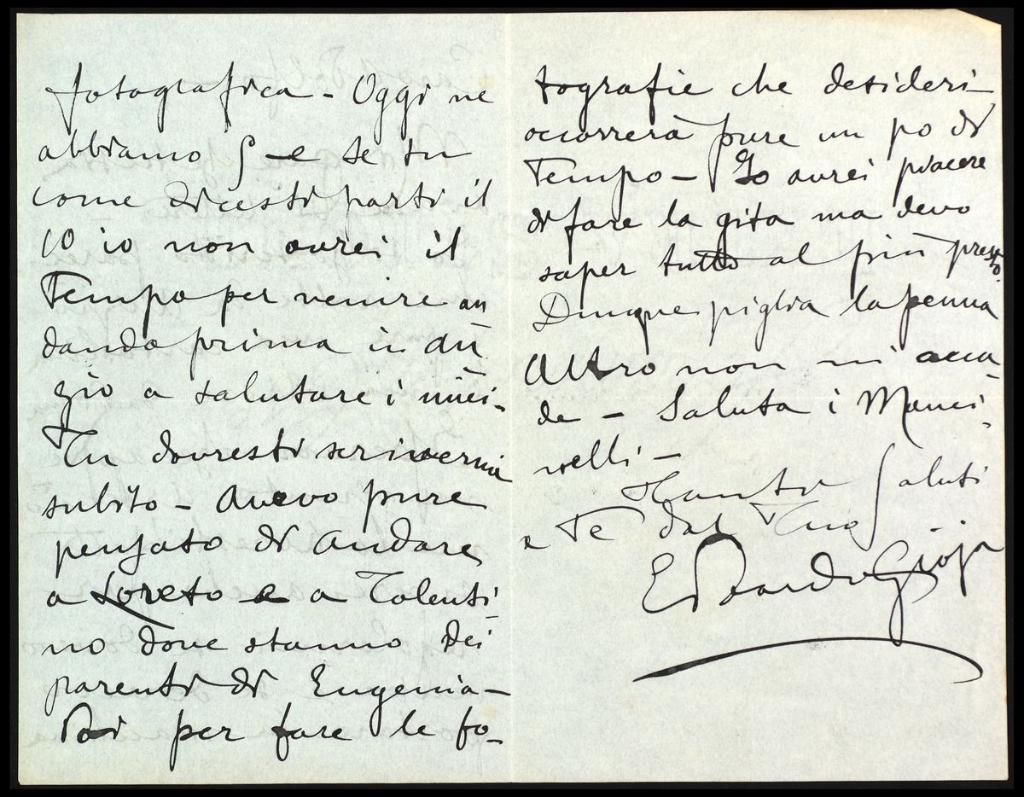 fotografica - Oggi ne
abbiamo 5 - e se tu
come dicesti parti il
10 io non avrei il
Tempo per venire an
dando prima in
gio a salutare i miei -
Tu dovresti scrivermi
subito - Avevo pure
pensato di andare
a Loreto e a Tolenti
no dove stanno dei
parenti di Eugenia -
Poi per fare le fo-
tografie che desideri
occorrerà pure un po di
Tempo - Io avrei piacere
di fare la gita ma devo
saper tutto al più presto.
Dunque piglia la penna
Altro non mi acca-
de - Saluta i Manci-
nelli -
Tanti Saluti
a Te dal Tuo
Edoardo Gioja